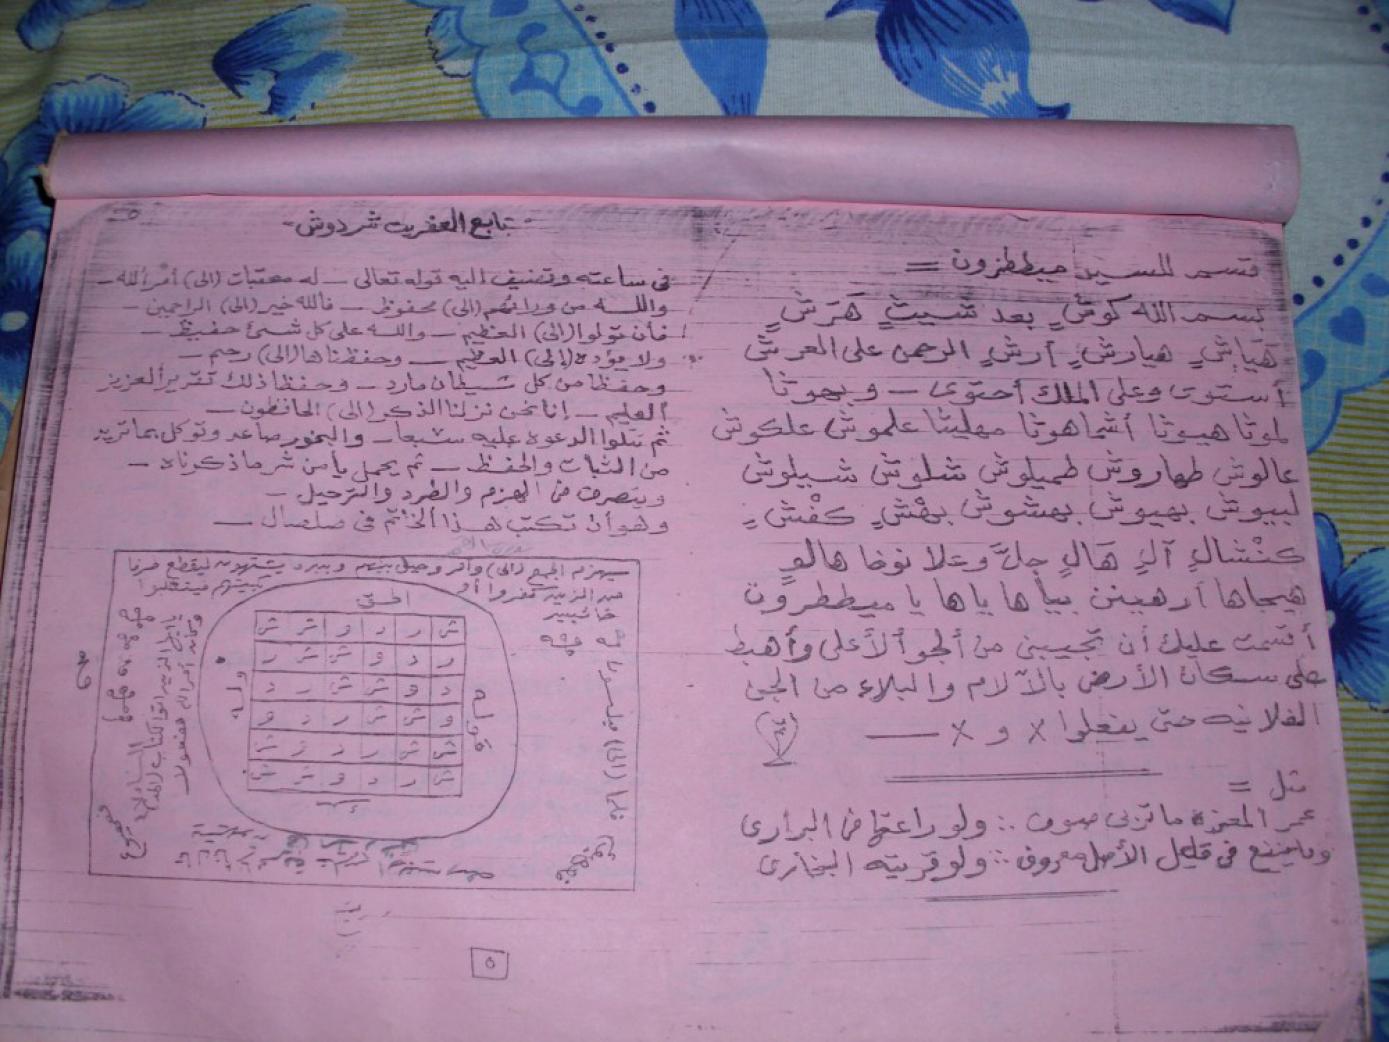 قسم للسيد ميططرون =
بسم الله كوشٍ بعد شيثٍ هَرَشٍ
هَيَاشٍ هيارشٍ أرشٍ الرحمن على العرش
أستوى وعلى الملك أحتوى – وبهوثا
لموثا هيوثا أشماهوثا مهليثا علموش علكوش
عالوش طهاروش طميلوش شلوش شيلوش
لبيوش بهيوش بهشوش بهْشٍ كفْشٍ
كنْشالٍ آلٍ هَالٍ جلَّ وعلا نوخا هالوٍ
هيجاها أرهبنن بياها ياها يا ميططرون
أقسمت عليك أن تجيبنى من الجو ألأعلى وأهبط
على سكان الأرض بالآلام والبلاء من الجن
الفلانيه حتى يفعلوا × و ×
مثل =
عمر المعزه ما تربى صوف :: ولو راعتها فى البرارى
وما ينفع فى قليل الأصل معروف :: ولو قريته البخارى
تابع العفريت شردوش -
فى ساعته وتضيف اليه قوله تعالى – له معقبات (الى) أمر الله –
والله من ورائهم (الى) محفوظ – فالله خير (الى) الراحمين –
فأن تولوا (الى) العظيم – والله على كل شىء حفيظ –
ولا يؤده (إلى) العظيم – وحفظناها (الى) رجيم –
وحفظا من كل شيطان مارد – وحفظا ذلك تقدير العزيز
العليم – إنا نحن نزلنا الذكر (الى) الحافظون –
ثم تتلوا الدعوه عليه سبعا – والبخور صاعد وتوكل بما تريد
من الثبات والحفظ – ثم يحمل يأمن شر ما ذكرناه –
ويتصرف فى الهزم والطرد والترحيل –
وهو أن تكتب هذا الخاتم فى صلصال –
سيهزم الجمع (الى) وأمر وحيل بينهم وبين ما يشتهون ليقطع طرفا
من الذين كفروا أو يكبتهم فينقلبوا
خائبين
الحق
ش ر د و ش ش
ر د و ش ش ر
د و ش ش ر د
و ش ش ر د و
ش ش ر د ر ش
ش ر د و ش ش
قوله
وكان أمر الله مفعولا
٥